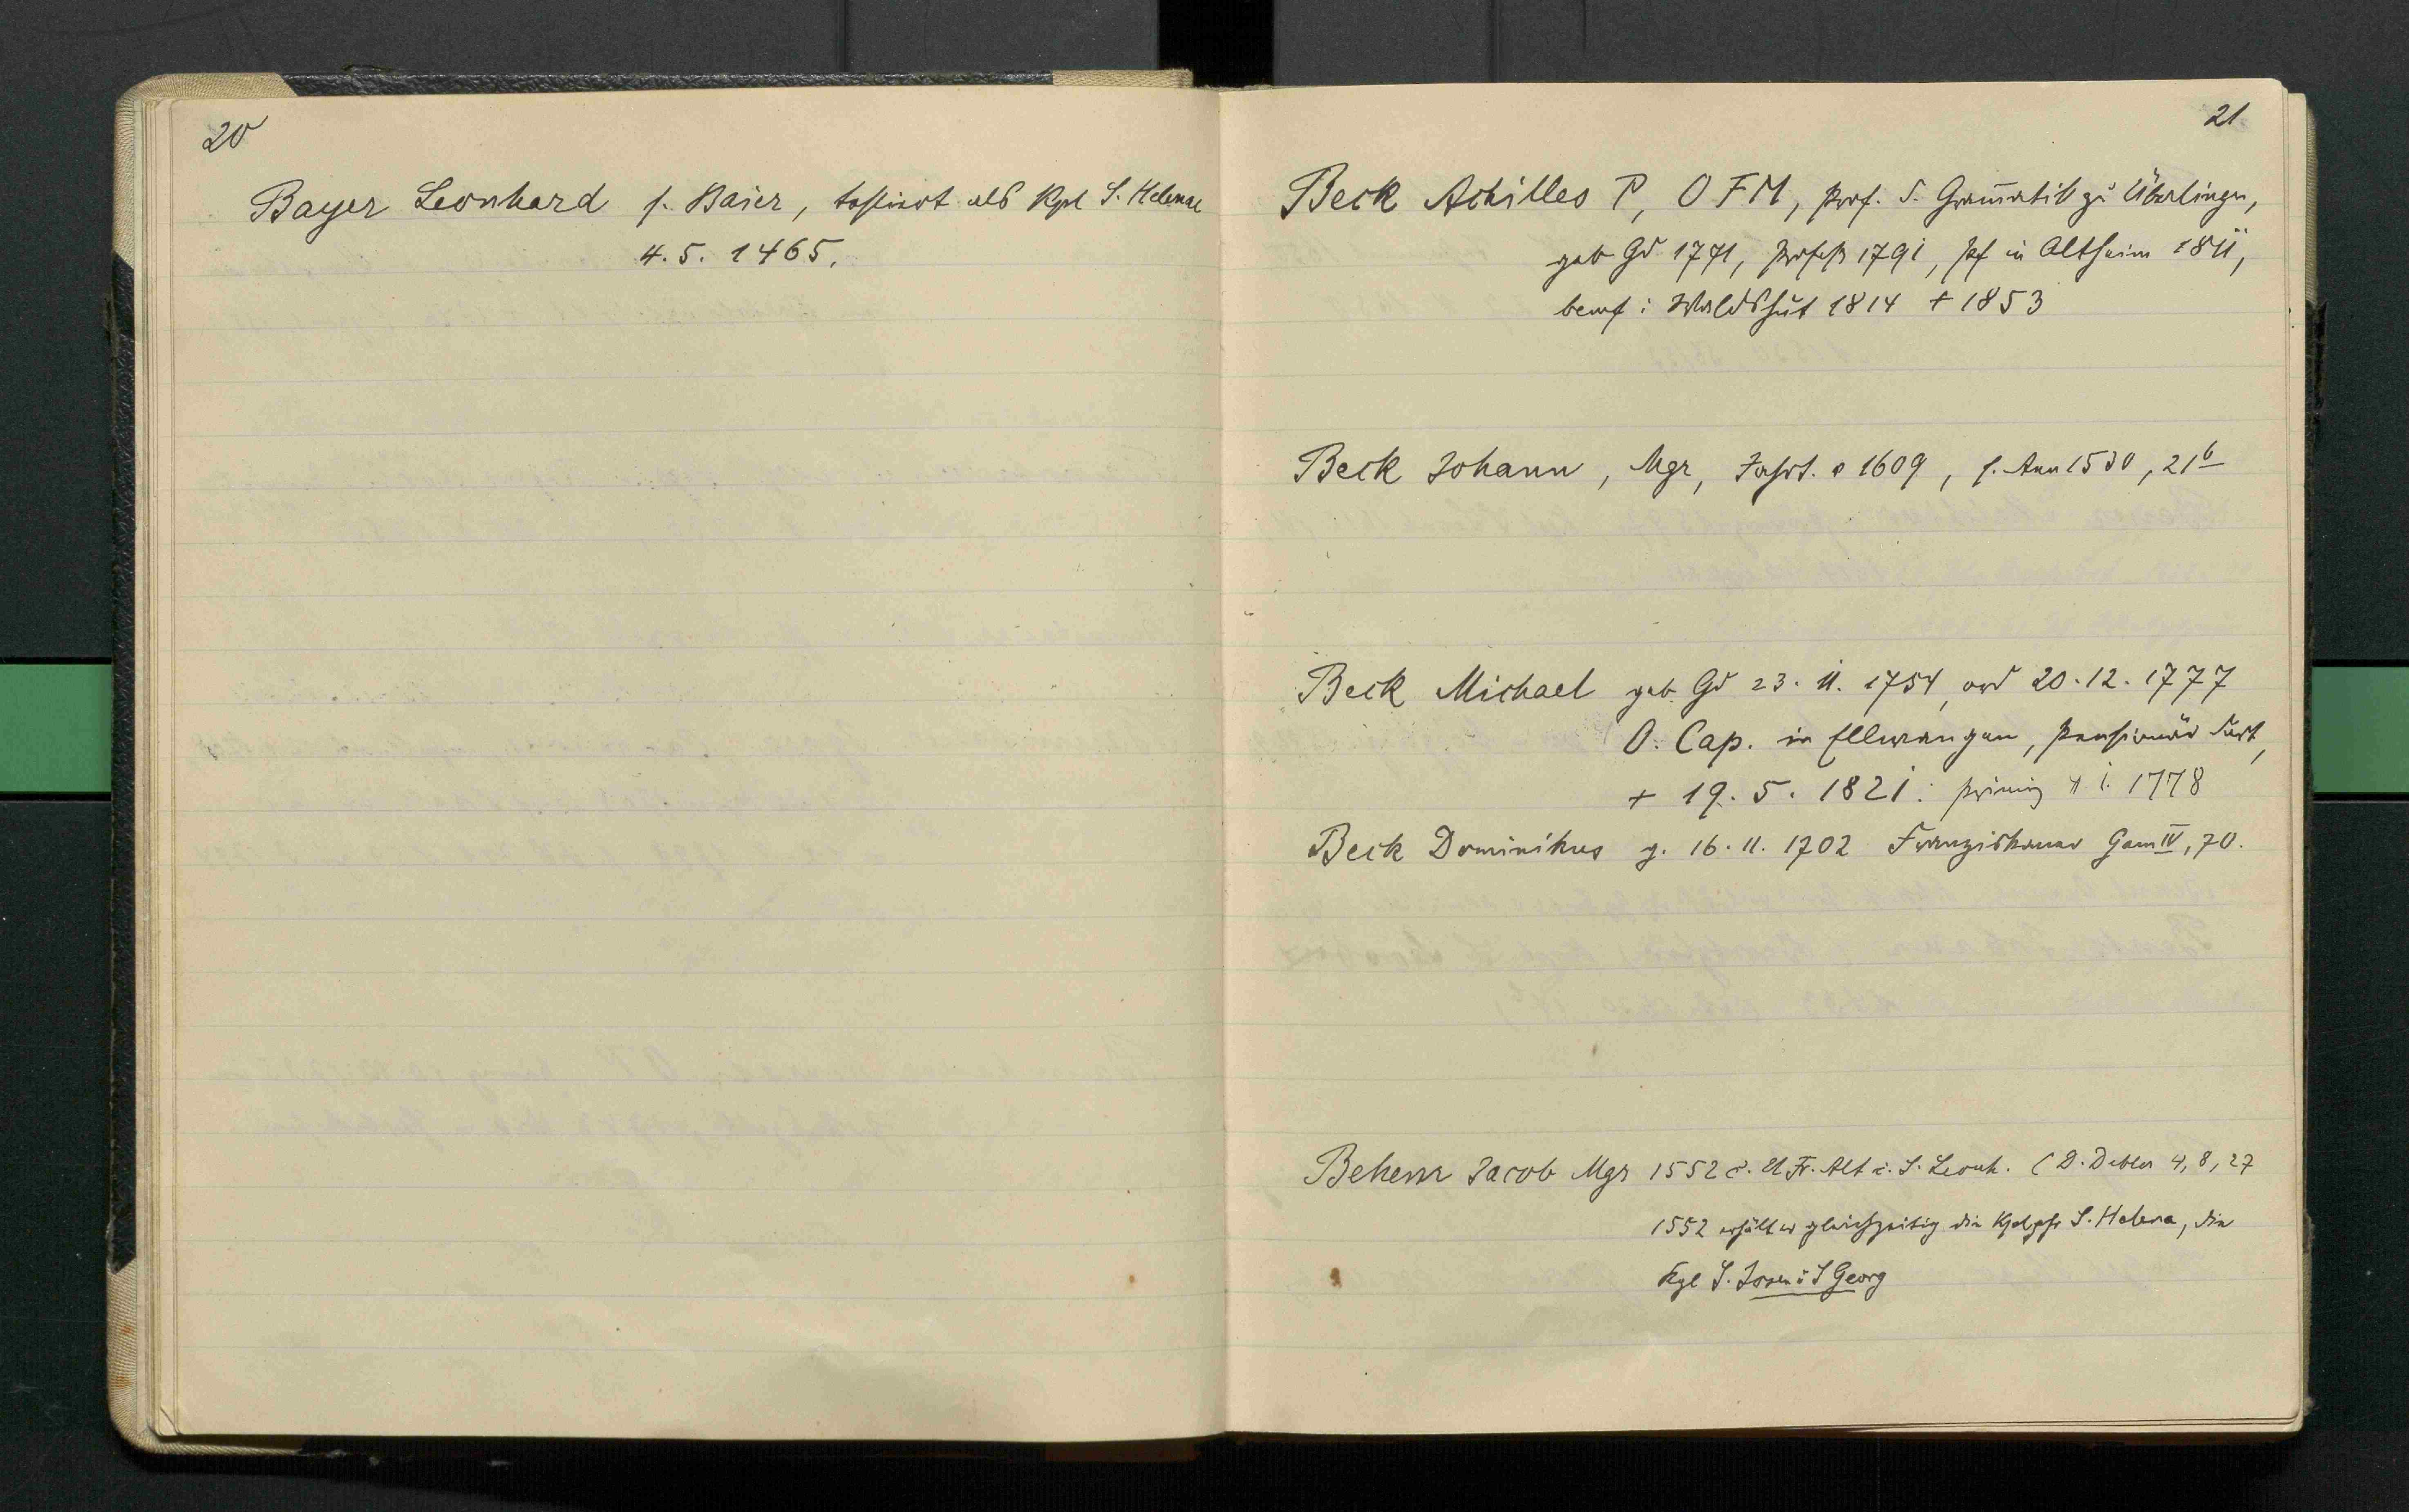 20
Bayer Leonhard s. Baier, testiert als Kpl S. Helenae
4. 5. 1465.
21
Beck Achilles P, OFM, Prof. d. Gram̄atik zu Überlingen,
geb Gd 1771, Profeß 1791, Pf in Altheim 1811,
benef: Waldshut 1814 + 1853
Beck Johann, Mgr, Jahrt. a 1609, s. Ann 1530, 21b
Beck Michael geb Gd 23. 11. 1754, ord 20. 12. 1777
O. Cap. in Ellwangen, Pensionär dort,
+ 19. 5. 1821. Primiz 1. 1778
Beck Dominikus g. 16. 11. 1702 Franziskaner Gam IV, 70.
Behem Jacob Mgr 1552 C. U Fr. Alt i. S. Leonh. (D. Debler 4, 8, 27
1552 erhält er gleichzeitig die S. Helena, die
S. Georg